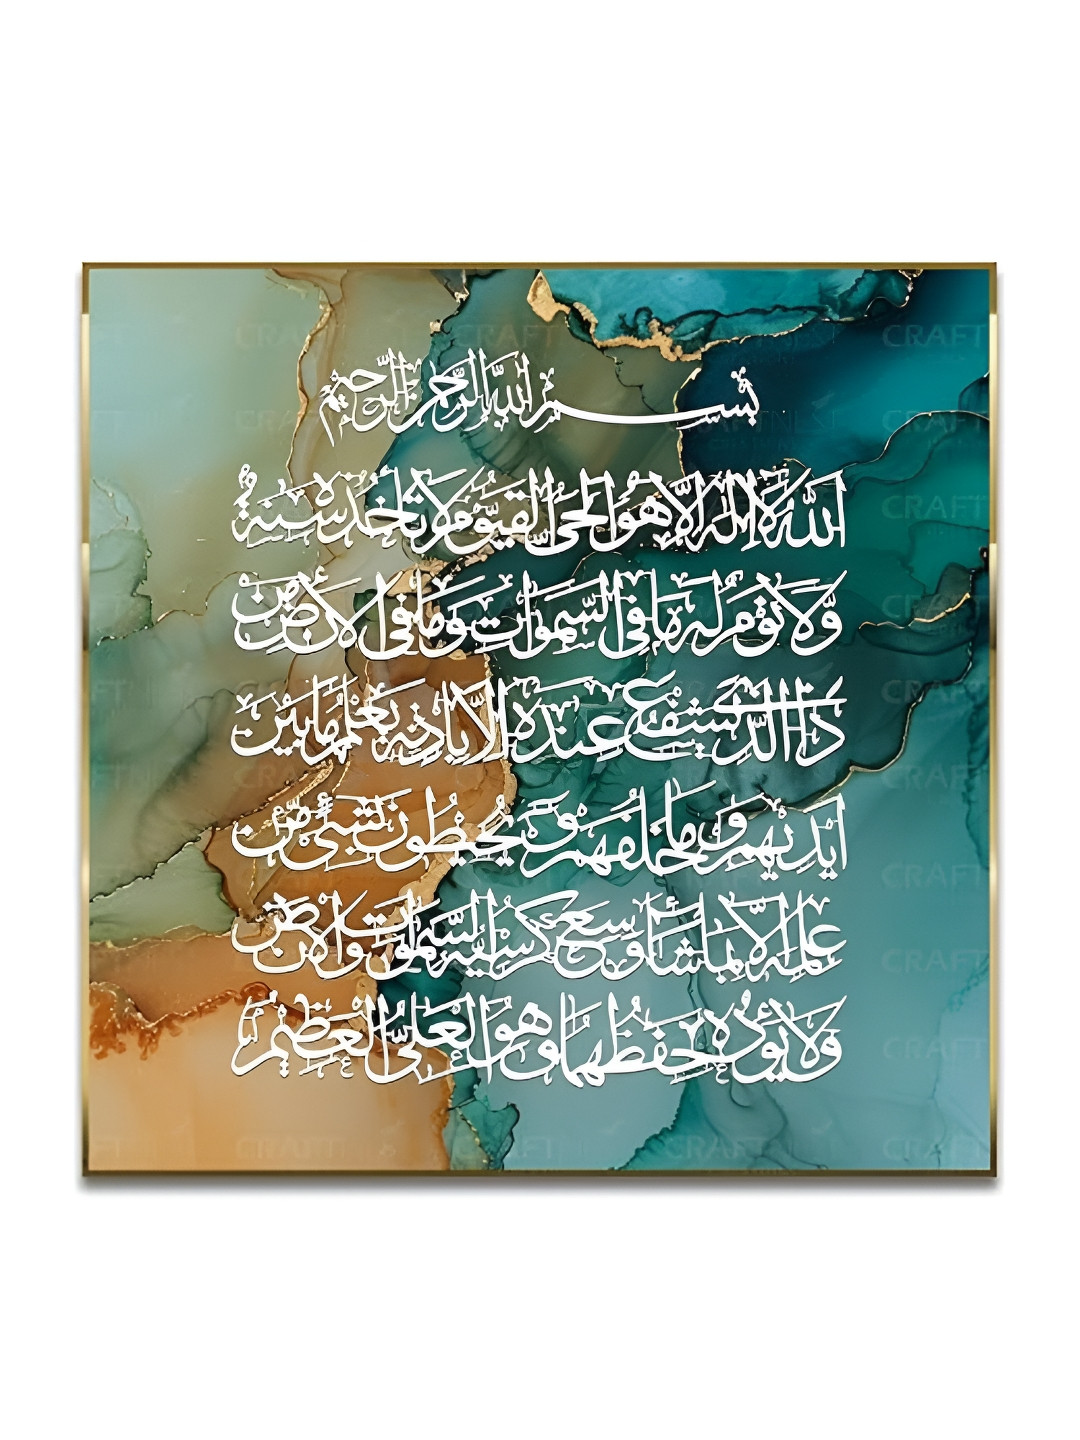 بسم الله الرحمن الرحيم
الله لا إله إلا هو الحي القيوم لا تأخذه سنة
ولا نوم له ما في السموات وما في الأرض من
ذا الذي يشفع عنده إلا بإذنه يعلم ما بين
أيديهم وما خلفهم ولا يحيطون بشيء من
علمه إلا بما شاء وسع كرسيه السموات والأرض
ولا يؤده حفظهما وهو العلي العظيم